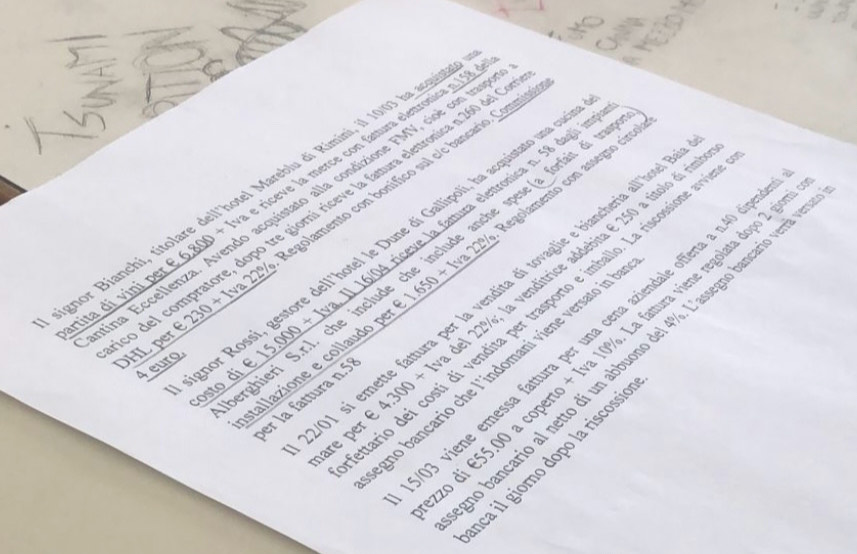 TSUNAMI
Il signor Bianchi, titolare dell'hotel Mareblu di Rimini, il 10/03 ha acquistato una
partita di vini per € 6.800 + Iva e riceve la merce con fattura elettronica n.158 della
Cantina Eccellenza. Avendo acquistato alla condizione FMV, cioè con trasporto a
carico del compratore, dopo tre giorni riceve la fattura elettronica n.260 del Corriere
DHL per € 230 + Iva 22%. Regolamento con bonifico sul c/c bancario. Commissione
4 euro.
Il signor Rossi, gestore dell'hotel le Dune di Gallipoli, ha acquistato una cucina del
costo di € 15.000 + Iva. Il 16/04 riceve la fattura elettronica n. 58 dagli impianti
Alberghieri S.r.l. che include che include anche spese (a forfait di trasporto,
installazione e collaudo per € 1.650 + Iva 22%. Regolamento con assegno circolare
per la fattura n.58
Il 22/01 si emette fattura per la vendita di tovaglie e biancheria all'hotel Baia del
mare per € 4.300 + Iva del 22%; la venditrice addebita € 250 a titolo di rimborso
forfettario dei costi di vendita per trasporto e imballo. La riscossione avviene con
assegno bancario che l'indomani viene versato in banca.
Il 15/03 viene emessa fattura per una cena aziendale offerta a n.40 dipendenti al
prezzo di €55.00 a coperto + Iva 10%. La fattura viene regolata dopo 2 giorni con
assegno bancario al netto di un abbuono del 4%. L'assegno bancario verrà versato in
banca il giorno dopo la riscossione.